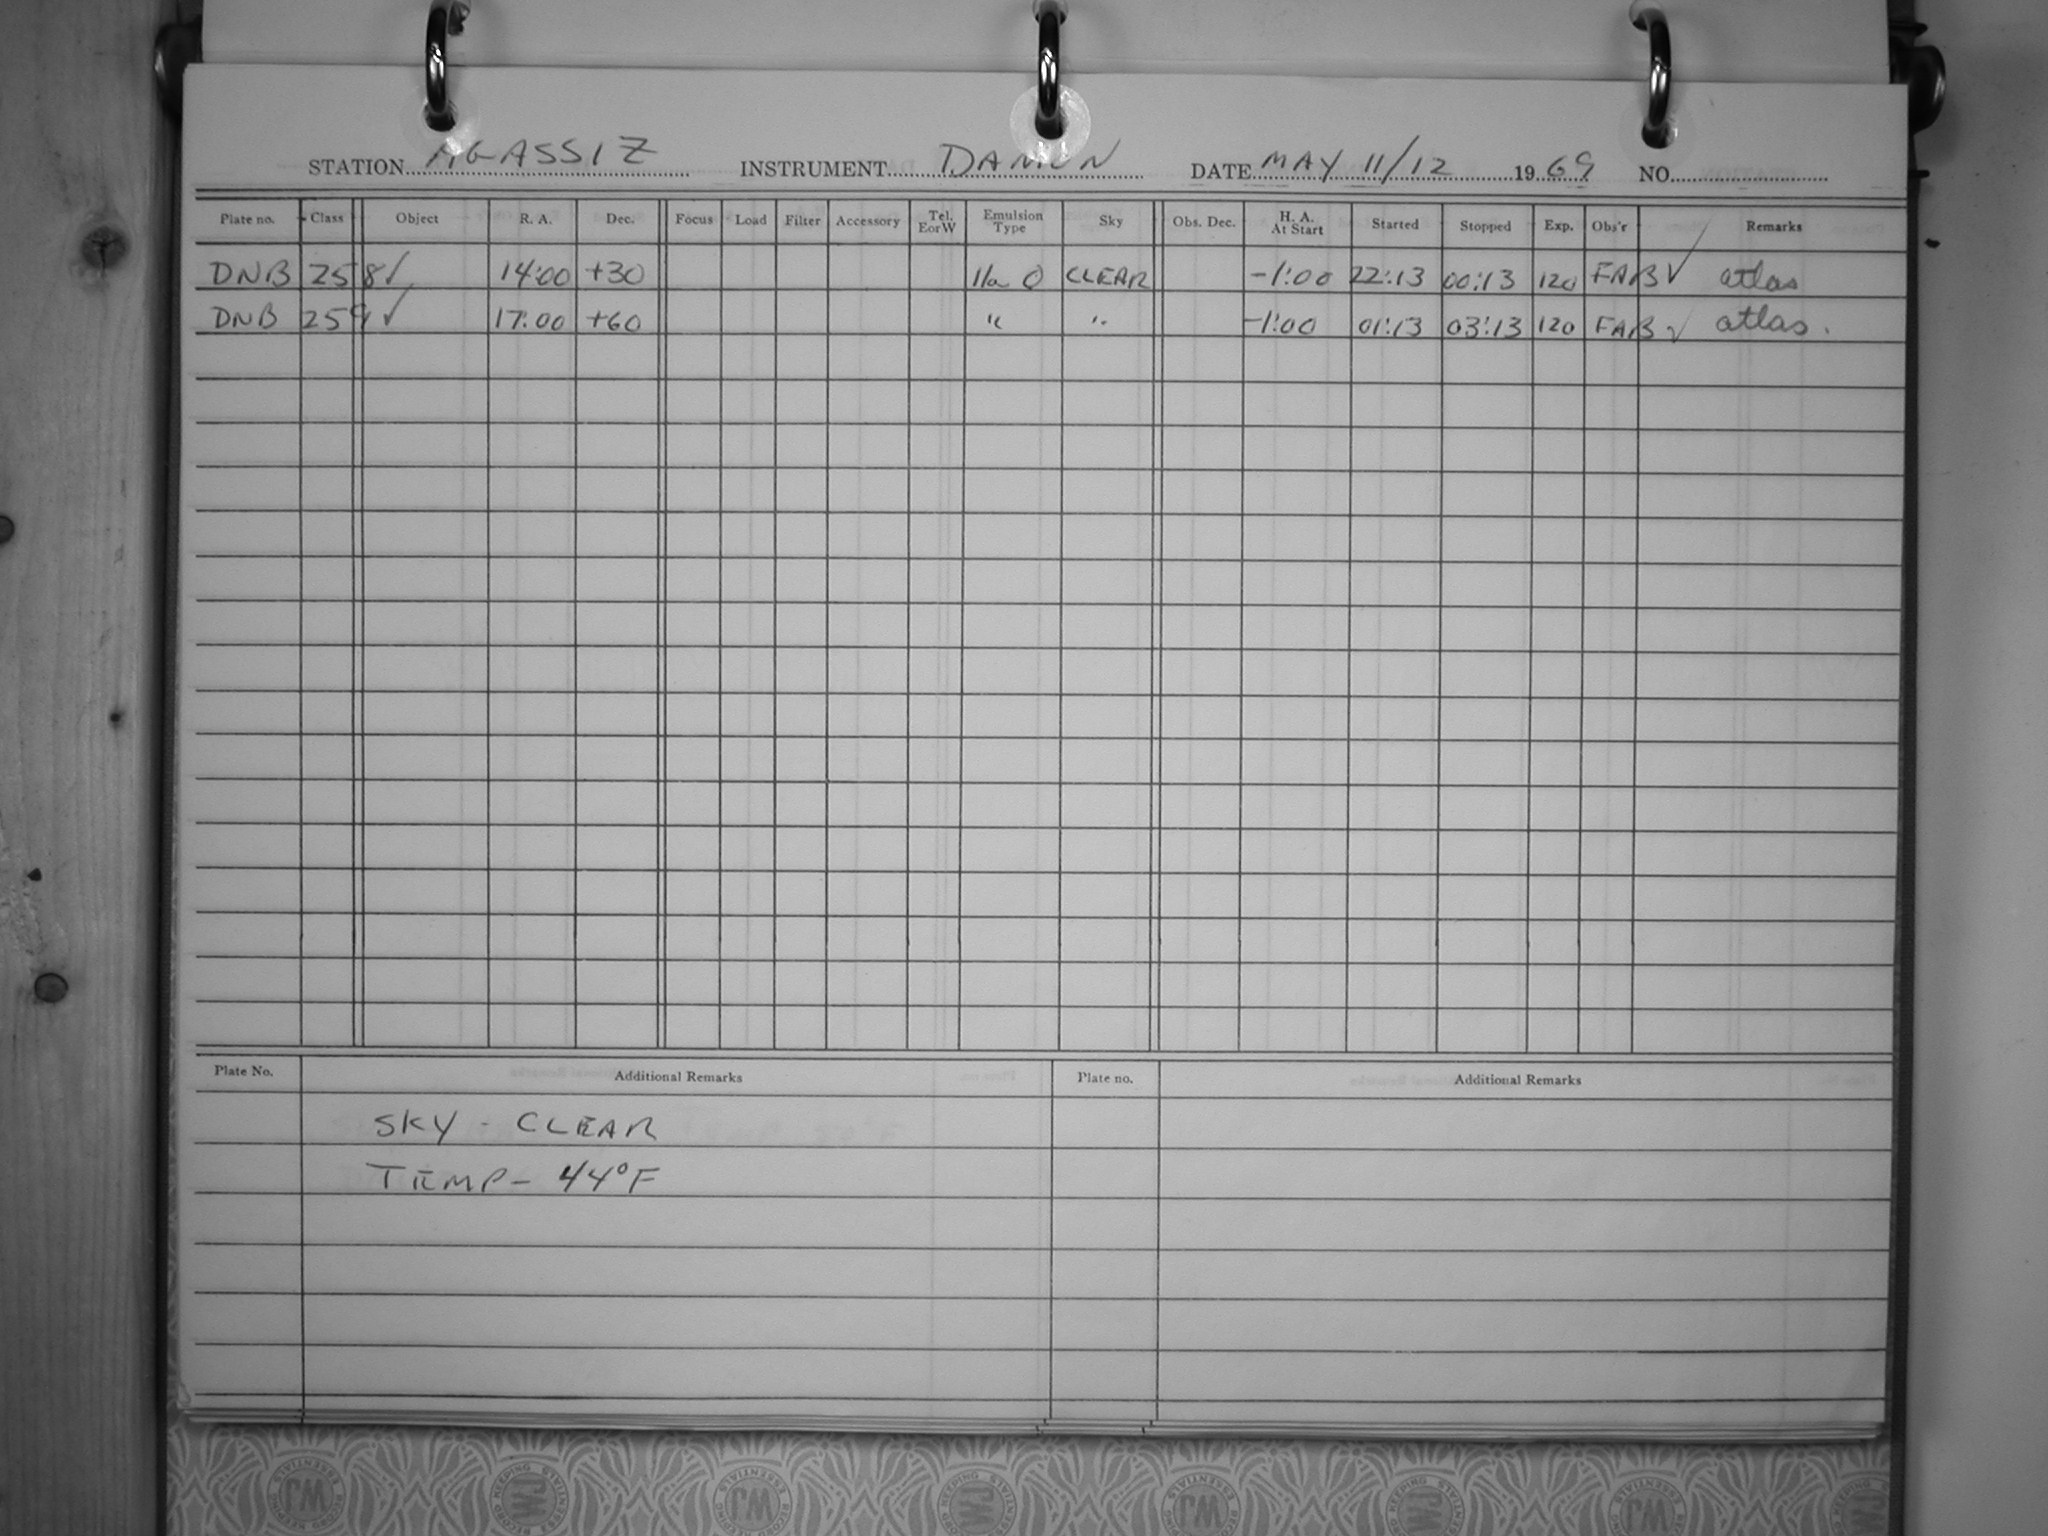 STATION AGASSIZ INSTRUMENT DAMON DATE MAY 11/12 1969 NO.
Plate no. Class Object R. A. Dec. Focus Load Filter Accessory Tel. EorW Emulsion Type Sky Obs. Dec. H. A. At Start Started Stopped Exp. Obs'r Remarks
DNB 258 ✓ 14:00 +30 IIa O CLEAR -1:00 22:13 00:13 120 FAB ✓ atlas
DNB 259 ✓ 17:00 +60 " " -1:00 01:13 03:13 120 FAB ✓ atlas.
Plate No. Additional Remarks Plate no. Additional Remarks
SKY - CLEAR
TEMP - 44°F
WJ ESSENTIALS RECORD KEEPING